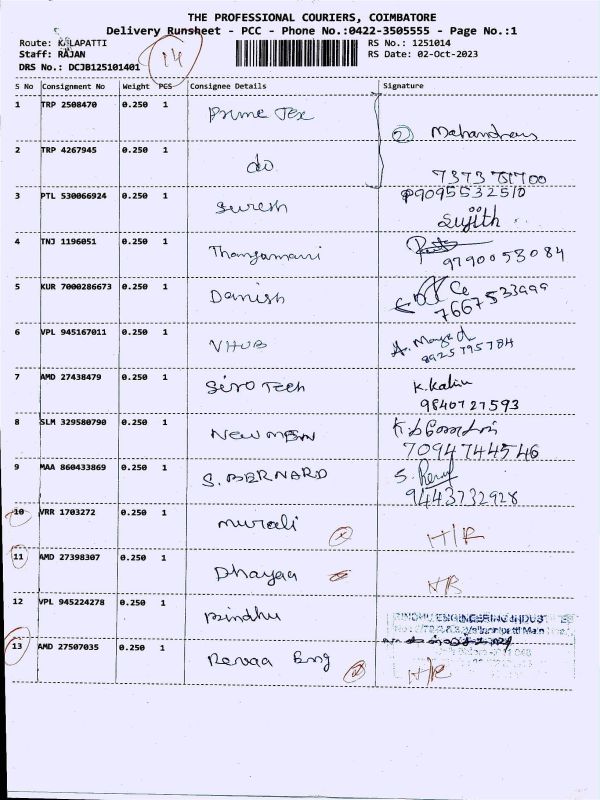 THE PROFESSIONAL COURIERS, COIMBATORE
Delivery Runsheet - PCC - Phone No.:0422-3505555 - Page No.:1
Route: KALAPATTI
Staff: RAJAN
DRS No.: DCJB125101401
14
RS No.: 1251014
RS Date: 02-Oct-2023
S No Consignment No Weight PCS Consignee Details Signature
1 TRP 2508470 0.250 1 Prime Tex
2 Mahandran
2 TRP 4267945 0.250 1 do
3 PTL 530066924 0.250 1 Suresh
9095532510
Sujith
4 TNJ 1196051 0.250 1 Thangamani
9790053084
5 KUR 7000286673 0.250 1 Danish
7667533999
6 VPL 945167011 0.250 1 VHUB
8925795784
7 AMD 27438479 0.250 1 Sero Tech
9840727593
8 SLM 329580790 0.250 1 NEWMEN
7094744546
9 MAA 860433869 0.250 1 S. BERNARD
9443732928
10 VRR 1703272 0.250 1 murali
11 AMD 27398307 0.250 1 Dhayaa
12 VPL 945224278 0.250 1 Bindhu
BINDHU ENGINEERING INDUST
13 AMD 27507035 0.250 1 Revaa Eng